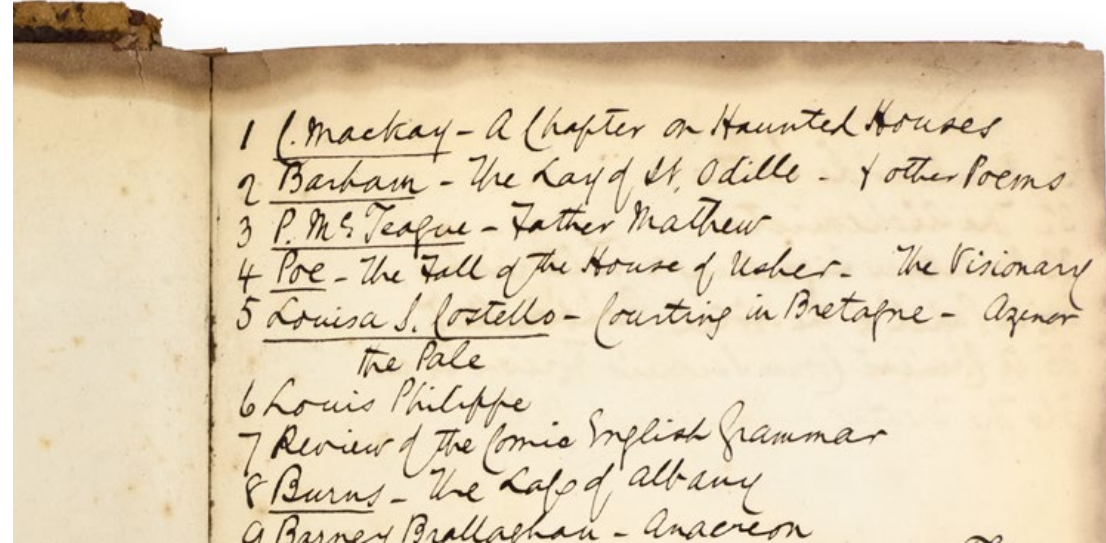 1 C. Mackay - A Chapter on Haunted Houses
2 Barham - The Lay of St. Odille - & other Poems
3 P. McTeague - Father Mathew
4 Poe - The Fall of the House of Usher - The Visionary
5 Louisa S. Costello - Courting in Bretagne - Azenor
the Pale
6 Louis Philippe
7 Review of the Comic English Grammar
8 Burns - The of Albany
9 Barney Brallaghan - Anacreon